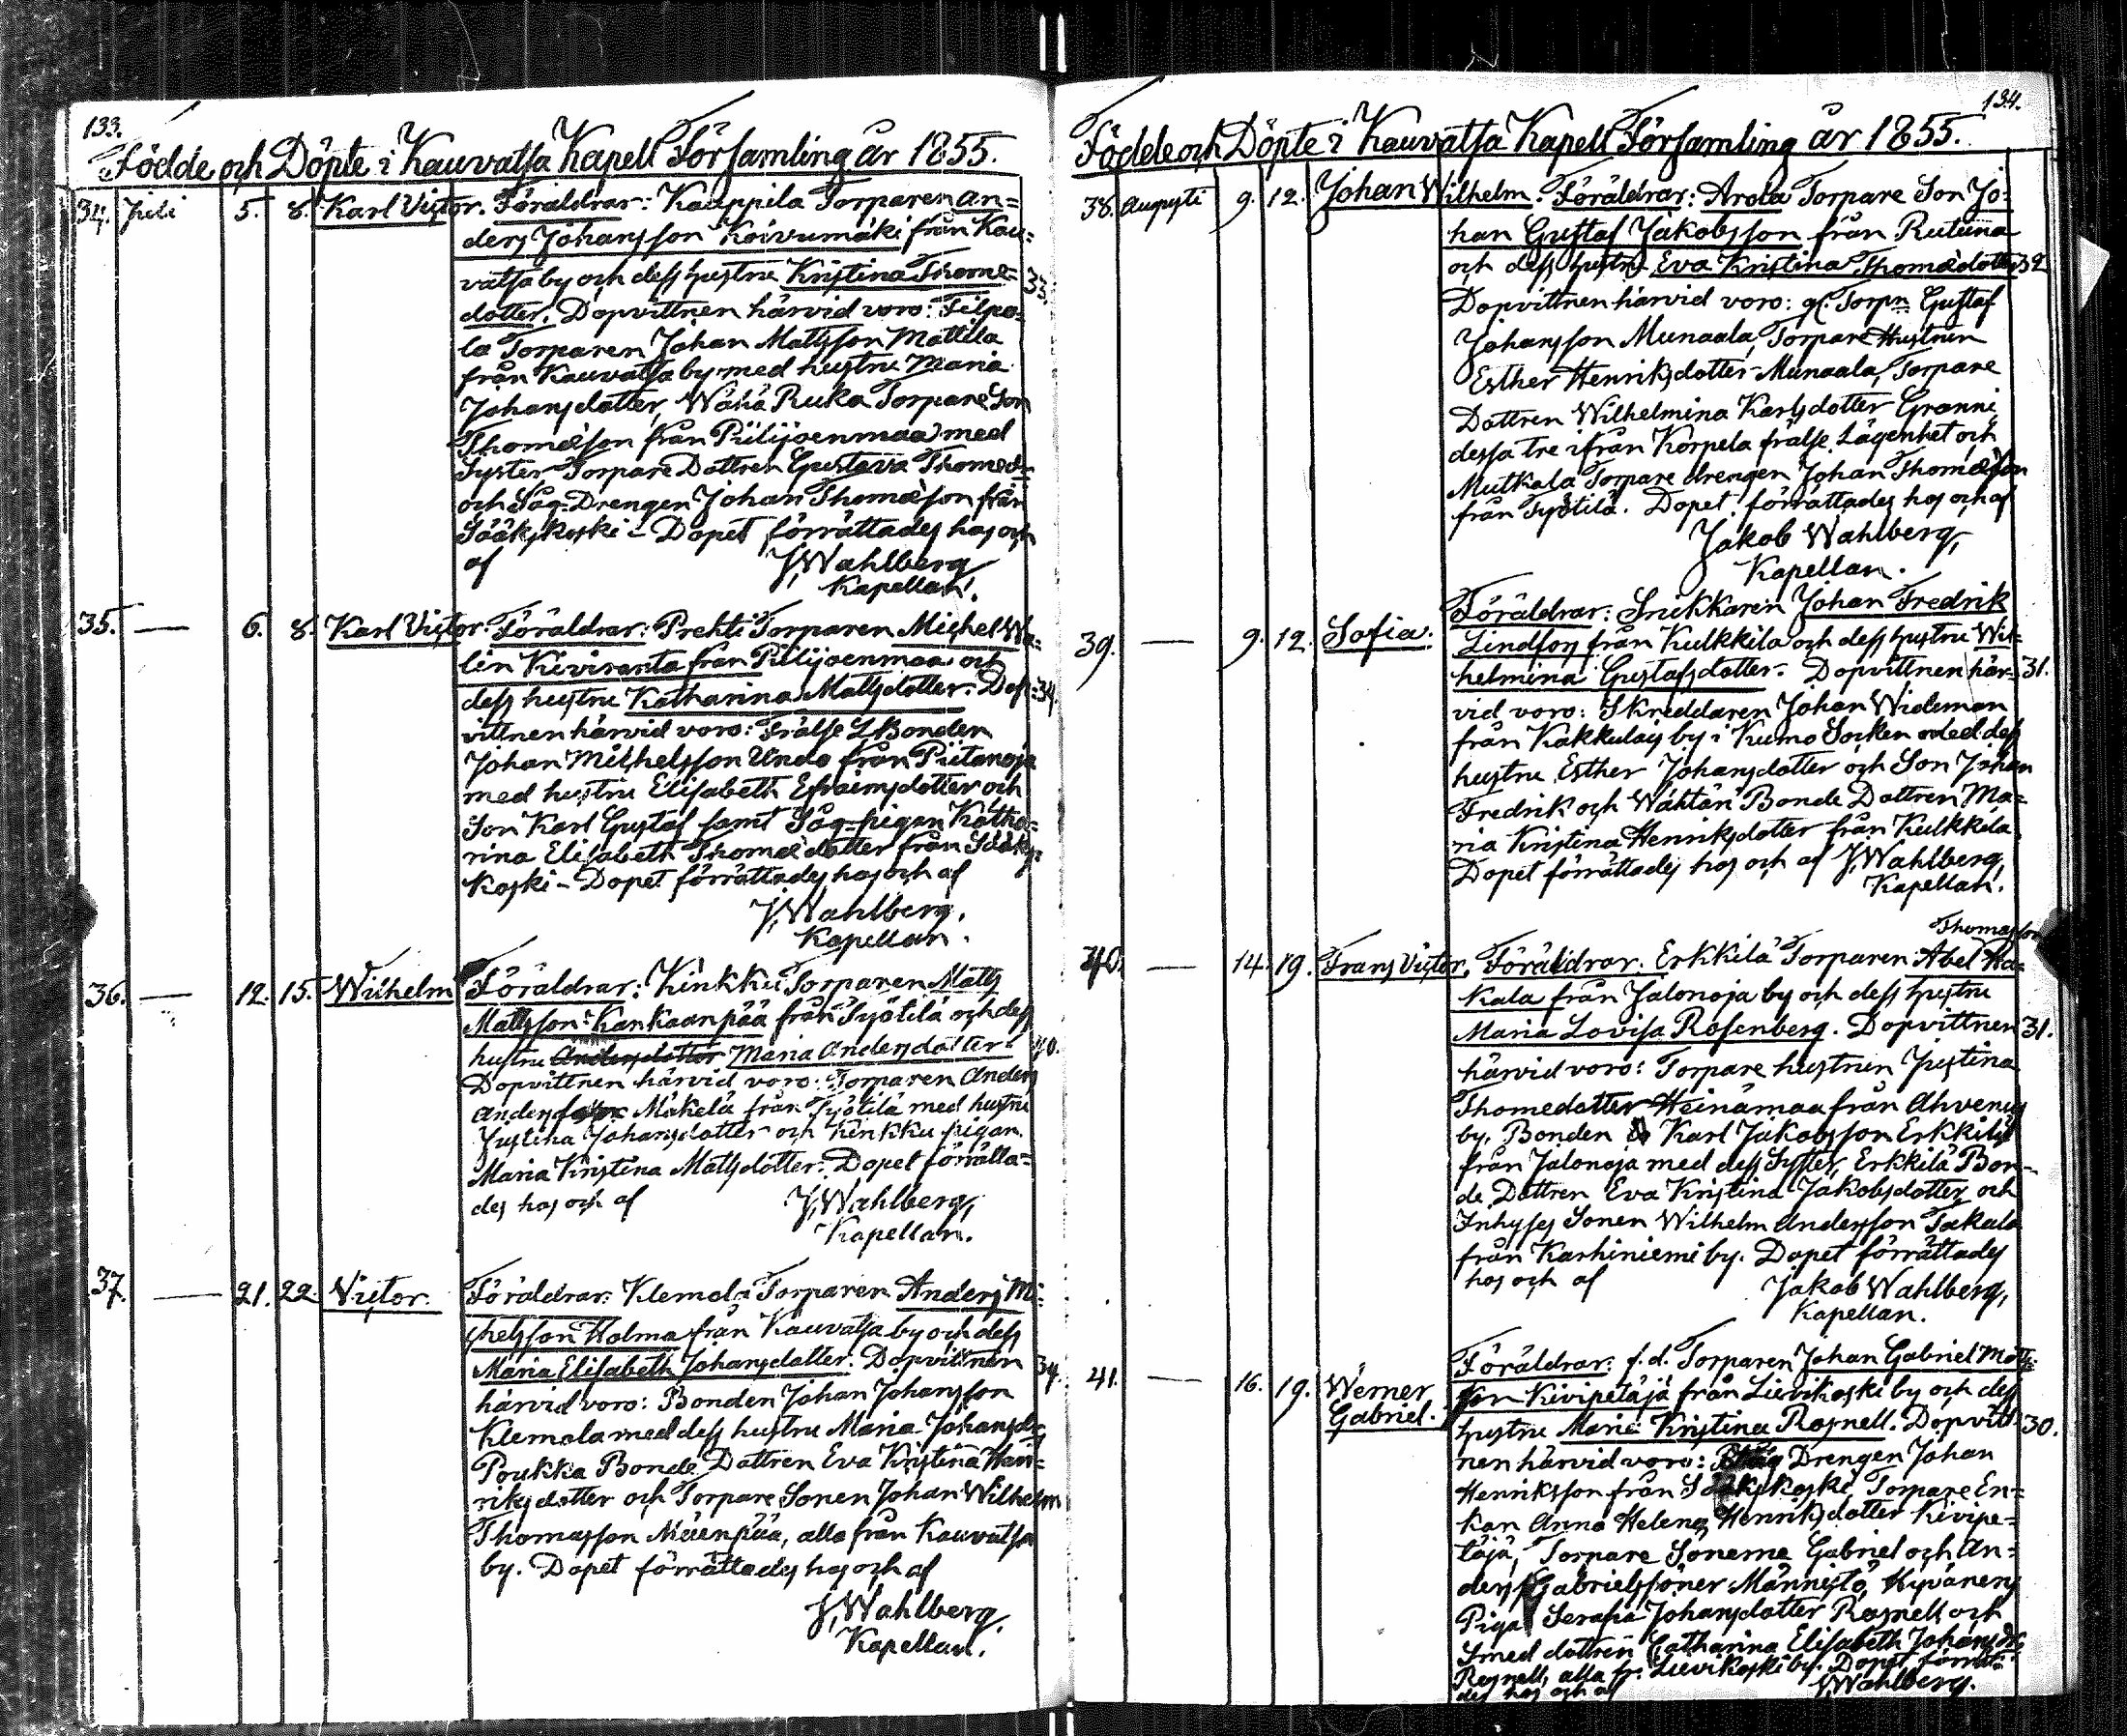 133.
Födde och Döpte i Kauvatsa Kapell Församling år 1855.
34. Juli 5. 8. Karl Victor. Föräldrar: Kauppila Torparen An=
ders Johansson Koivumäki från Kau=
vatsa by och dess hustru Kristina Thome= 33.
dotter. Dopvittnen härvid voro: Filpo=
la Torparen Johan Mattsson Mattila
från Kauvatsa by med hustru Maria
Johansdotter, Wähä Ruka Torpare Son
Thomæson från Piilijoenmaa med
Syster Torpare Dottren Gustava Thomedr
och Såg-Drengen Johan Thomæson från
Sääkskoski – Dopet förrättades hos och
af J. Wahlberg
Kapellan.
35. — 6. 8. Karl Victor. Föräldrar: Prehti Torparen Michel Wa=
lin Kiviranta från Piilijoenmaa och
dess hustru Katharina Mattsdotter. Dop= 34.
vittnen härvid voro: Frälse L. Bonden
Johan Mikhelsson Undo från Piitanoja
med hustru Elisabeth Efraimsdotter och
Son Karl Gustaf samt Såg-pigan Katha=
rina Elisabeth Thomædotter från Sääks=
koski – Dopet förrättades hos och af
J. Wahlberg.
Kapellan.
36. — 12. 15. Wilhelm Föräldrar: Kinkku Torparen Matts
Mattsson Kankaanpää från Pyötilä och dess
hustru Andersdotter Maria Andersdotter 40.
Dopvittnen härvid voro: Torparen Anders
Andersson Mäkelä från Pyötilä med hustru
Justina Johansdotter och Kinkku pigan
Maria Kristina Mattsdotter. Dopet förrätta=
des hos och af J. Wahlberg,
Kapellan.
37. — 21. 22. Victor. Föräldrar: Klemola Torparen Anders Mi=
chelsson Holma från Kauvatsa by och dess
Maria Elisabeth Johansdotter. Dopvittnen 34.
härvid voro: Bonden Johan Johansson
Klemola med dess hustru Maria Johansdr,
Poukka Bonde Dottren Eva Kristina Hen=
riksdotter och Torpare Sonen Johan Wilhelm
Thomasson Mäenpää, alla från Kauvatsa
by. Dopet förrättades hos och af
J. Wahlberg.
Kapellan.
134.
Födde och Döpte i Kauvatsa Kapell Församling år 1855.
38. Augusti 9. 12. Johan Wilhelm. Föräldrar: Arola Torpare Son Jo=
han Gustaf Jakobsson från Rutuna
och dess hustru Eva Kristina Thomædotter 32
Dopvittnen härvid voro: gl. Torpn Gustaf
Johansson Munaala, Torpare Hustrun
Esther Henriksdotter Munaala, Torpare
Dottren Wilhelmina Karlsdotter Granni
dessa tre ifrån Korpela frälse Lägenhet och
Mutkala Torpare drengen Johan Thomæson
från Pyötilä. Dopet förrättades hos och af
Jakob Wahlberg,
Kapellan.
39. — 9. 12. Sofia. Föräldrar: Snikkaren Johan Fredrik
Lindfors från Kulkkila och dess hustru Wil=
helmina Gustafsdotter. Dopvittnen här= 31.
vid voro: Skreddaren Johan Wideman
från Kakkulais by i Kumo Socken med dess
hustru Esther Johansdotter och Son Johan
Fredrik och Wähtän Bonde Dottren Ma=
ria Kristina Henriksdotter från Kulkkila
Dopet förrättades hos och af J. Wahlberg,
Kapellan.
Thomasson
40. — 14. 19. Frans Victor. Föräldrar. Erkkilä Torparen Abel Ha=
kala från Jalonoja by och dess hustru
Maria Lovisa Rosenberg. Dopvittnen 31.
härvid voro: Torpare hustrun Justina
Thomedotter Heinämaa från Ahvenus
by. Bonden Karl Jakobsson Erkkilä
från Jalonoja med dess Syster, Erkkilä Bon=
de Dottren Eva Kristina Jakobsdotter och
Inhyses Sonen Wilhelm Andersson Takala
från Karhiniemi by. Dopet förrättades
hos och af Jakob Wahlberg,
Kapellan.
41. — 16. 19. Werner Föräldrar: f. d. Torparen Johan Gabriel Matts=
Gabriel. son Kivipetäjä från Lievikoski by och dess
hustru Maria Kristina Rosnell. Dopvitt= 30.
nen härvid voro: Drengen Johan
Henriksson från Sääkskoski, Torpare En=
kan Anna Helena Henriksdotter Kivipe=
täjä, Torpare Sönerne Gabriel och An=
ders Gabrielssöner Männistö, Hyvänens
Piga Serafia Johansdotter Rosnell och
Smed dottren Catharina Elisabeth Johansdr
Rosnell, alla fr. Lievikoski by. Dopet förrätta=
des hos och af J. Wahlberg.